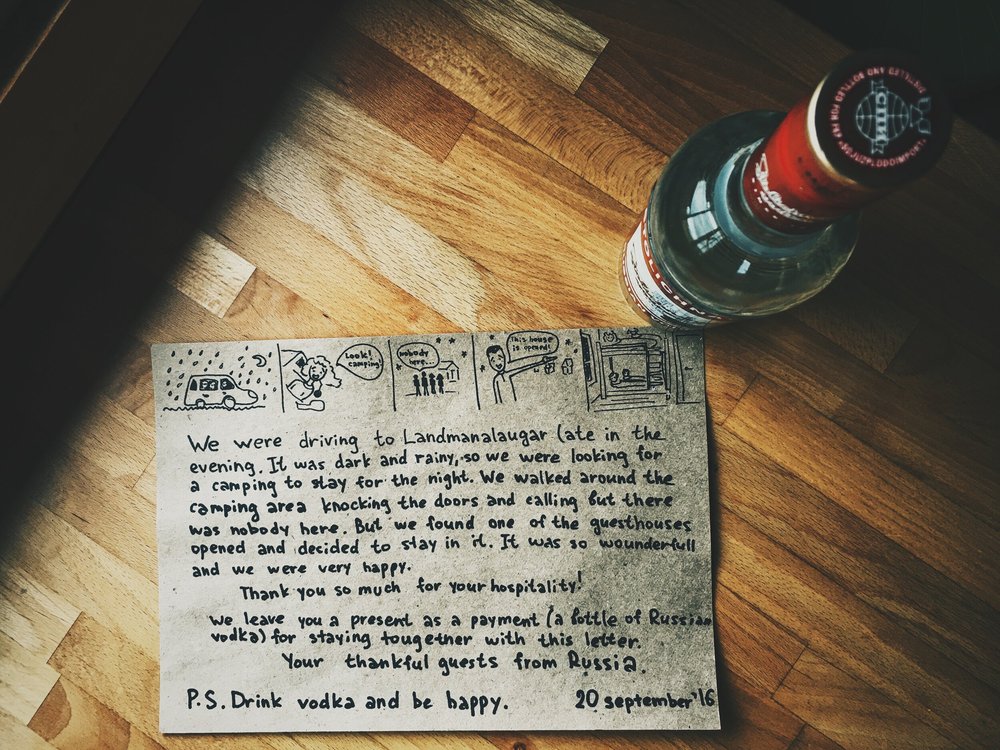 DISTILLED AND BOTTLED FOR FKP
SOJUZPLODOIMPORT
Look!
camping!
nobody
here...
This house
is opened!
We were driving to Landmanalaugar late in the
evening. It was dark and rainy, so we were looking for
a camping to stay for the night. We walked around the
camping area knocking the doors and calling but there
was nobody here. But we found one of the guesthouses
opened and decided to stay in it. It was so wounderfull
and we were very happy.
Thank you so much for your hospitality!
we leave you a present as a payment (a bottle of Russian
vodka) for staying tougether with this letter.
Your thankful guests from Russia.
P.S. Drink vodka and be happy. 20 september'16